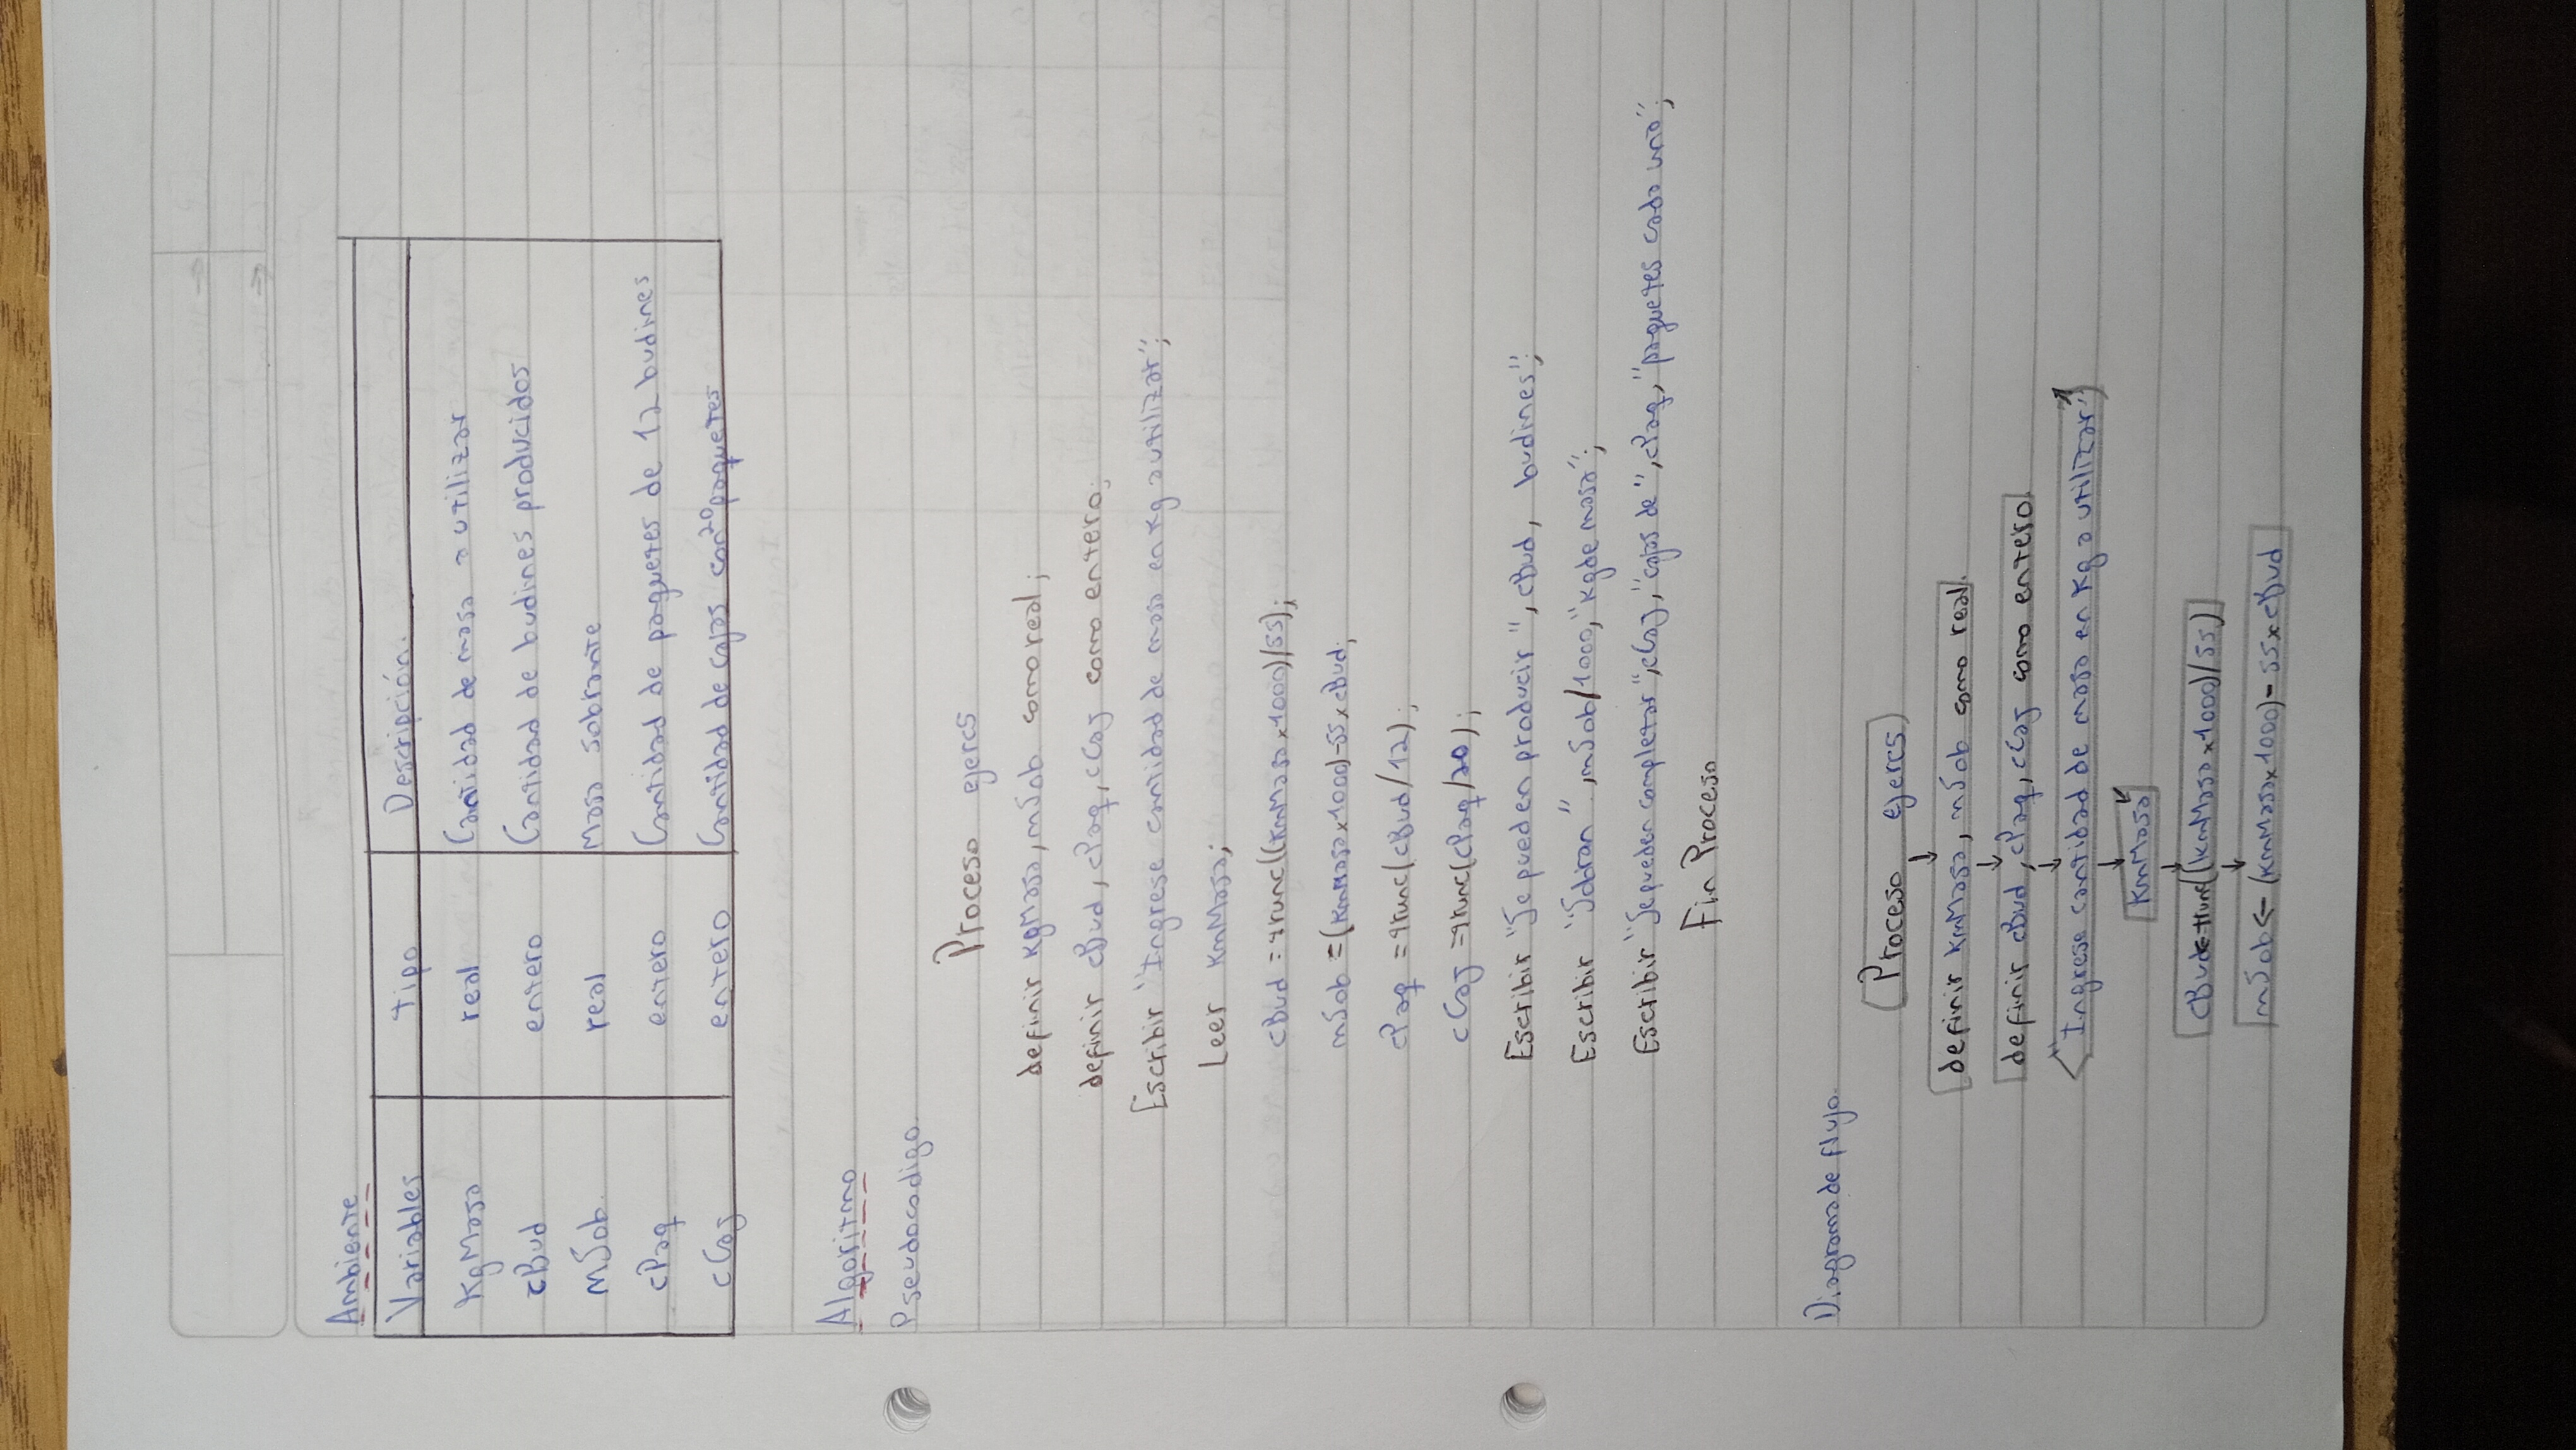 Ambiente
Variables Tipo Descripción.
KgMasa real Cantidad de masa a utilizar
cBud entero Cantidad de budines producidos
mSob. real Masa sobrante
cPaq entero Cantidad de paquetes de 12 budines
cCaj entero Cantidad de cajas con 20 paquetes
Algoritmo
Pseudocodigo.
Proceso ejerc5
definir KgMasa, mSob como real;
definir cBud, cPaq, cCaj como entero;
Escribir "Ingrese cantidad de masa en Kg a utilizar";
Leer KmMasa;
cBud =trunc((KmMasa x 1000)/55);
mSob =(KmMasa x 1000)-55 x cBud;
cPaq =trunc(cBud/12);
cCaj =trunc(cPaq/20);
Escribir "Se pueden producir", cBud, budines";
Escribir "Sobran", mSob/1000, "Kg de masa";
Escribir "Se pueden completar", cCaj, "cajas de", cPaq, "paquetes cada uno";
Fin Proceso
Diagrama de flujo.
Proceso ejerc5
definir KmMasa, mSob como real.
definir cBud, cPaq, cCaj como entero.
"Ingrese cantidad de masa en Kg a utilizar"
KmMasa
cBud ← trunc((KmMasa x 1000)/55)
mSob ← (KmMasa x 1000) - 55 x cBud